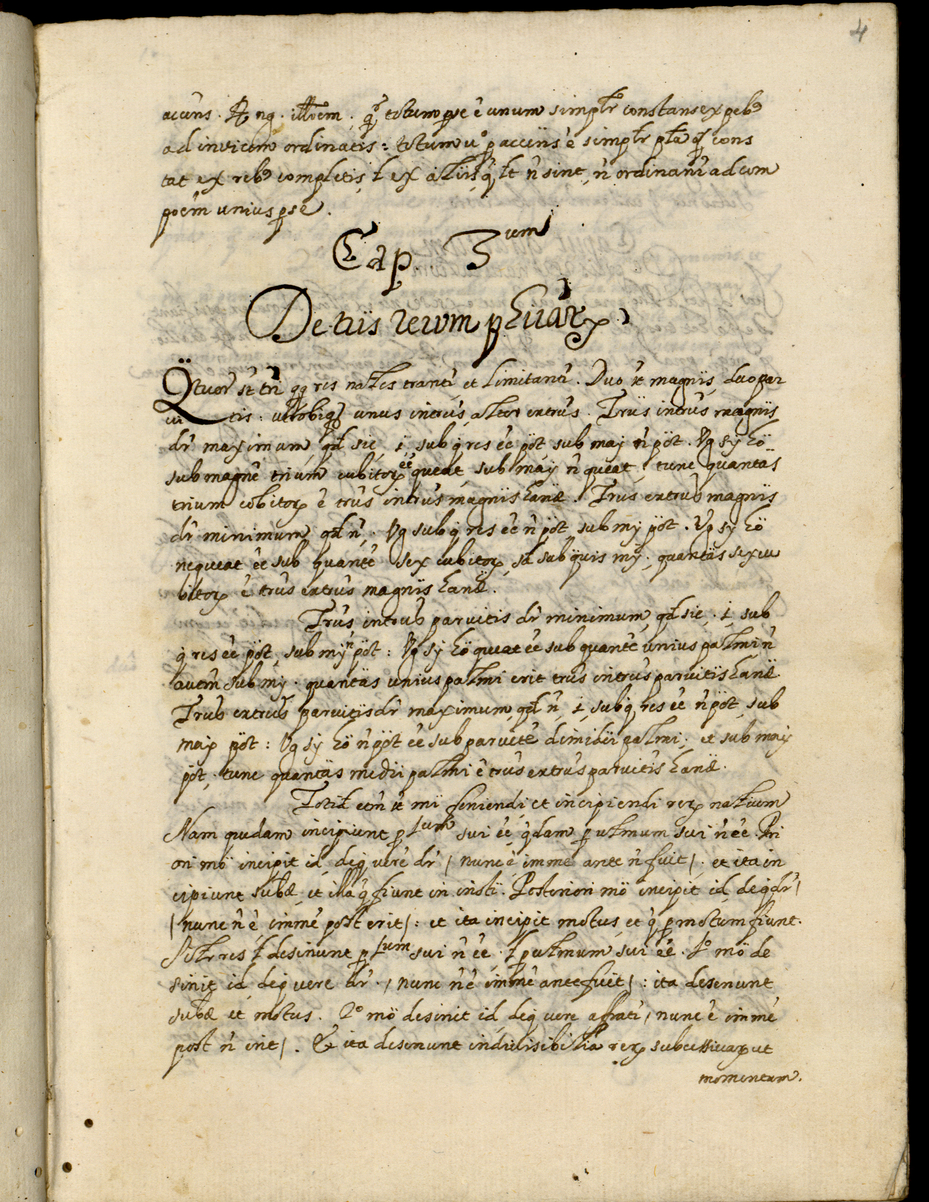 4
accñs. R, ng. illōem. q totum p se ē unum simplr constans ex ꝑtb9
ad invicem ordinatis: totum u° p accñs ē simplr plā q cons
tat ex reb9 completis, l ex aliis, q lt ñ sint, ñ ordinañt ad com
poēm unius p se.
Cap. 3um
De tiis rerum
Qtuor st tñi qq res nales tranti et limitanti. Duo st magñis, duo par
vitis: utrobiq unus intrūs, alter extrūs. Trūs intrūs magñis
dr maximum, qd sic, i, sub q res ēe pöt sub maj ñ pöt. Vg sy hö
sub magnē trium cubitor ēe queat, sub maj ñ queat, tunc quantäs
trium cubitor ē trūs intrūs magñis hanë. Trūs extrūs magñis
dr minimum, qd ñ. Vg sub q res ēe ñ pöt, sub my pöt. Vg sy hö
nequeat ēe sub quantē sex cubitor, sd sub quis my, quantäs sex cu
bitor ē trūs extrūs magñis hanë.
Trūs intrūs parvitis dr minimum, qd sic, i, sub
q res ēe pöt, sub my ñ pöt: Vg sy hö queat ēe sub quantē unius palmi ñ
autm sub my. quantäs unius palmi erit trūs intrūs parvitis hanë.
Trūs extrūs parvitis dr maximum, qd ñ, i, sub q, res ēe ñ pöt, sub
maj pöt: Vg sy hö ñ pöt ēe sub parvitē dimidii palmi, et sub maj
pöt, tunc quantäs medii palmi ē trūs extrūs parvitis hanë.
Totid etñ st mi feniendi et incipiendi rer nalium
Nam quedam incipiunt p lum sui ēe, qdam p ultmum sui ñ ēe. Pri
ori mö incipit id, de q verē dr (nunc ē immē ante ñ fuit). et ita in
cipiunt subæ, et illa q fiunt in insti. Posteriori mö incipit id, de q dr,
(nunc ñ ē immē post erit): et ita incipit motus et q p motum fiunt.
Silr res l desinunt p lum sui ñ ēe, l p ultmum sui ēe. 1° mö de
sinit id, de q vere dr, (nunc ñ ē immē ante fuit): ita desinunt
subæ et motus. 2° mö desinit id, de q vere affrāti, (nunc ē immē
post ñ erit). Et ita desinunt indivisibilia rer successivar, ut
momentum.